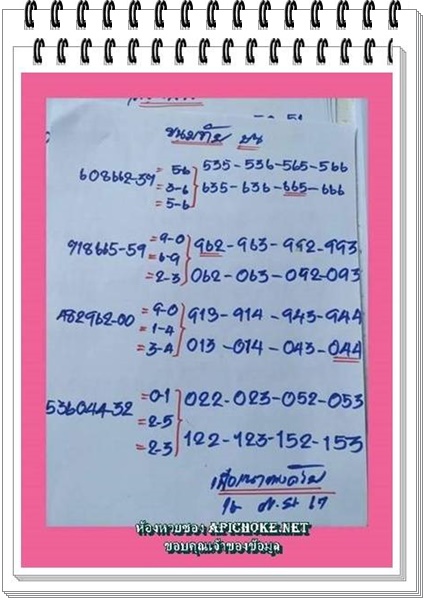 ขนมถ้วย บน
608662-39
= 5-6
= 3-6
= 5-6
535-536-565-566
635-636-665-666
918665-59
= 9-0
= 6-9
= 2-3
962-963-992-993
062-063-092-093
482962-00
= 9-0
= 1-4
= 3-4
913-914-943-944
013-014-043-044
536044-32
= 0-1
= 2-5
= 2-3
022-023-052-053
122-123-152-153
ห้องหวยซอง APICHOKE.NET
ขอบคุณเจ้าของข้อมูล